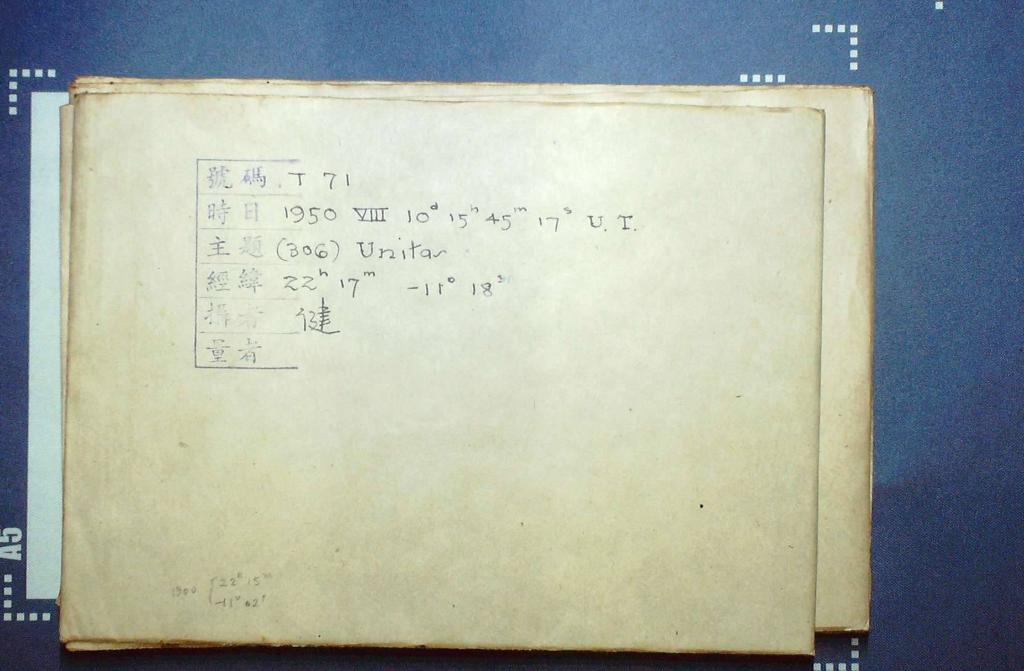 號碼 T 71
時日 1950 VIII 10ᵈ 15ʰ 45ᵐ 17ˢ U.T.
主題 (306) Unitas
經緯 22ʰ 17ᵐ -11° 18
攝者 健
量者
1900 { 22ʰ 15ᵐ
-11° 02'
A5